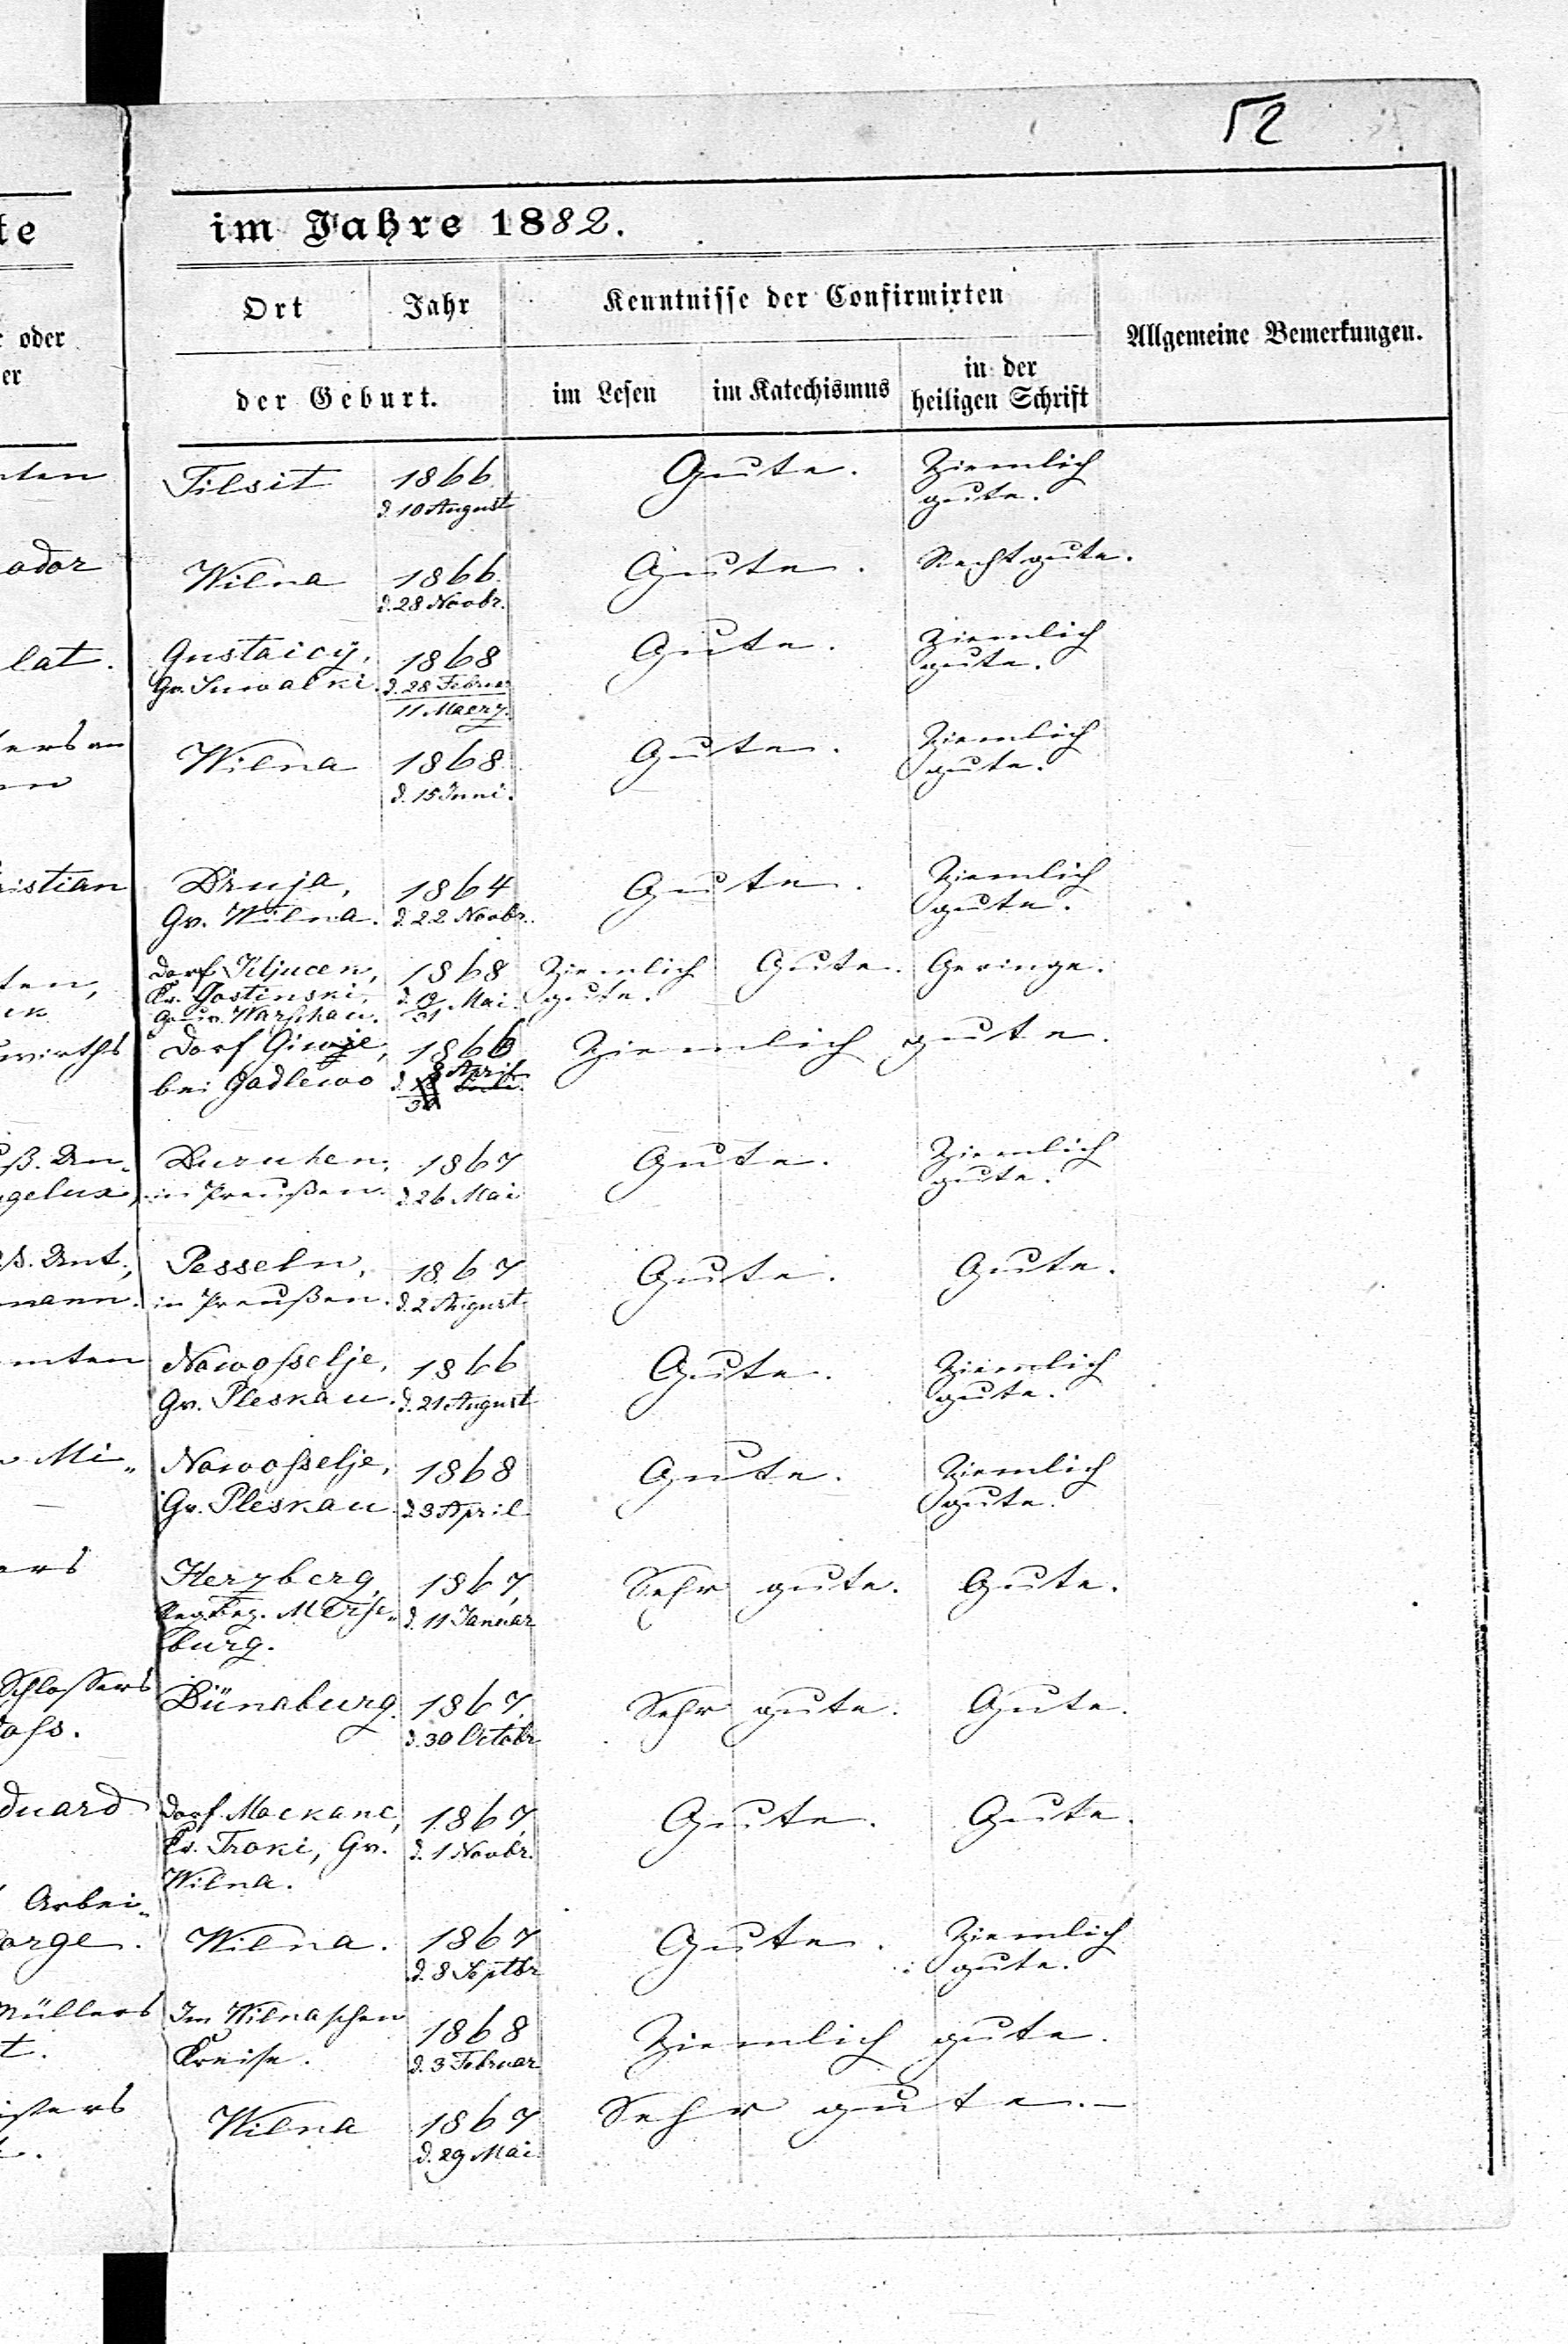 52
te
im Jahre 1882.
oder
er
Ort Jahr
Kenntnisse der Confirmirten
Allgemeine Bemerkungen.
der Geburt.
im Lesen im Katechismus in der heiligen Schrift
nten Tilsit 1866. Gute. Ziemlich
d. 10 August gute.
ador Wilna 1866. Gute. Recht gute.
d. 28 Novbr.
lat. Gustaicy, 1868 Gute. Ziemlich
Gv. Suwalki. d. 28 Februar gute.
11 Maerz.
Wilna 1868. Gute. Ziemlich
d. 15 Juni. gute.
ristian Druja, 1864 Gute. Ziemlich
Gv. Wilna. d. 22 Novbr. gute.
ten, Dorf Kljucen, 1868 Ziemlich Gute. Geringe.
Kr. Gostinski, d. 19 Mai gute.
Gouv. Warschau. 31
wirths Dorf Giwje, 1866 Ziemlich gute.
bei Godlewo d. 8 April
ß. Un- Buruhen, 1867 Gute. Ziemlich
gelus, in Preußen. d. 26 Mai gute.
ß. Unt., Pesseln, 1867 Gute. Gute.
mann. in Preußen. d. 2 August.
mten Nowosselje, 1866 Gute. Ziemlich
Gv. Pleskau. d. 21 August gute.
Mi- Nowosselje, 1868 Gute. Ziemlich
Gv. Pleskau. d. 3 April gute.
ers Herzberg, 1867, Sehr gute. Gute.
Reg. Bez. Merse- d. 11 Januar
burg.
Schlossers Dünaburg. 1867. Sehr gute. Gute.
oss. d. 30 Octobr
duard Dorf Mackanc, 1867, Gute. Gute.
Kr. Troki, Gv. d. 1 Novbr.
Wilna.
Arbei-
orge. Wilna. 1867 Gute. Ziemlich
d. 8 Septbr gute.
Müllers Im Wilnaschen 1868 Ziemlich gute.
t. Kreise. d. 3 Februar
isters Wilna 1867 Sehr gute.—
d. 29 Mai.